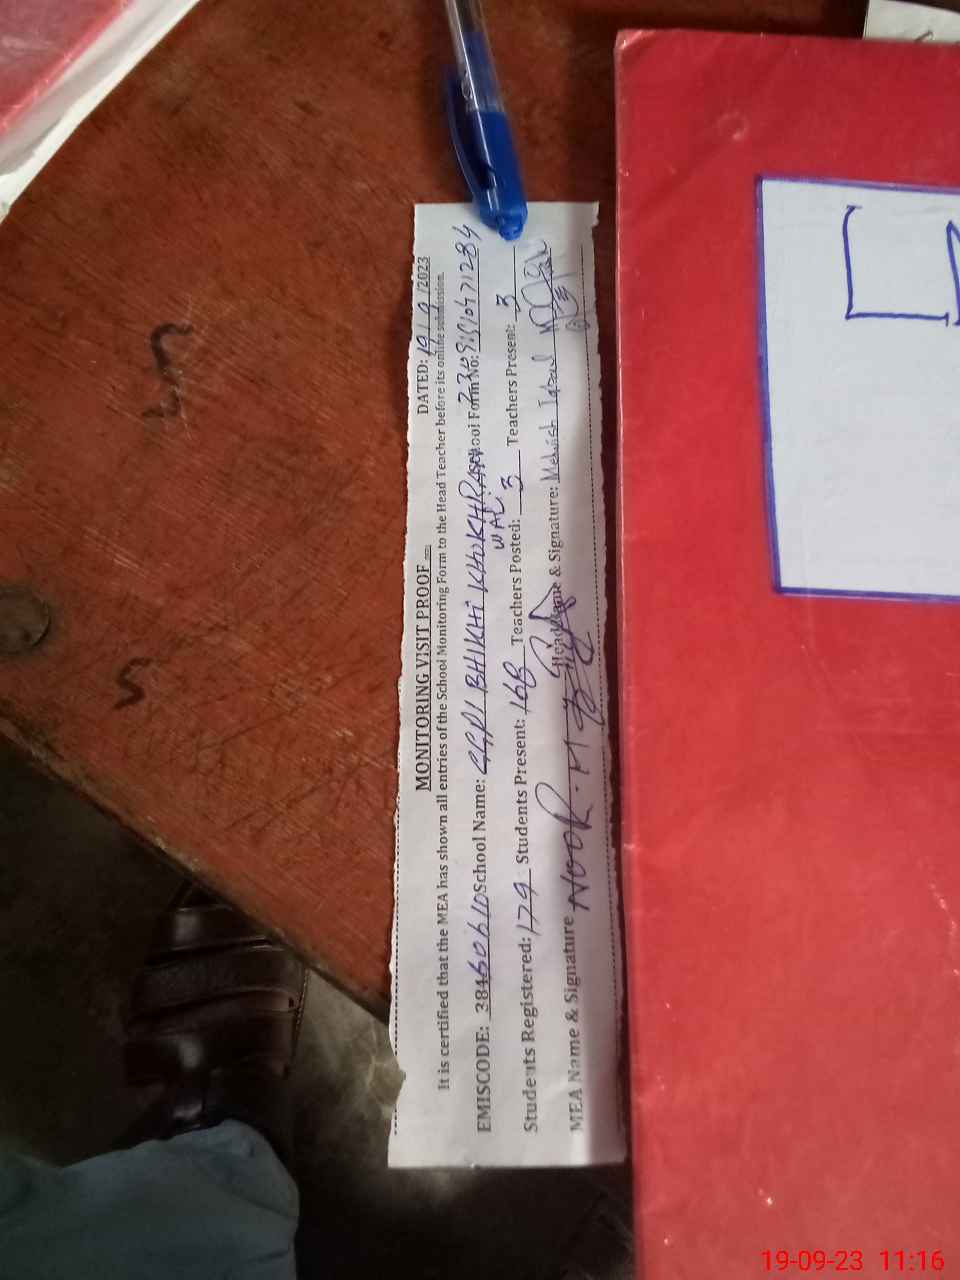 MONITORING VISIT PROOF
DATED: 19/9/2023
It is certified that the MEA has shown all entries of the School Monitoring Form to the Head Teacher before its online submission.
EMISCODE: 38460610 School Name: GGPS BHIKHI KHOKHRAN WALI School Form No:
Students Registered: 179 Students Present: 168 Teachers Posted: 3 Teachers Present: 3
MEA Name & Signature NOOR.M Head Name & Signature: Mehvish Iqbal
19-09-23 11:16